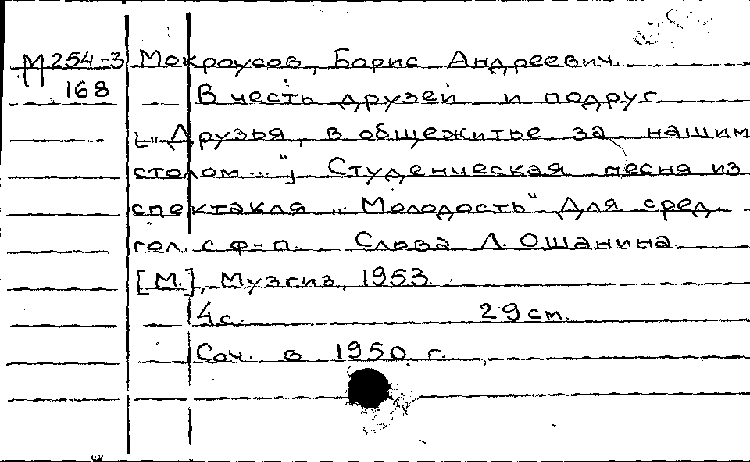 М 254-3 Мокроусов, Борис Андреевич.
168 В честь друзей и подруг
[„Друзья, в общежитье за нашим
столом..."] Студенческая песня из
спектакля „Молодость" Для сред.
гол. с ф-п. Слова Л. Ошанина
[М.], Музгиз, 1953.
4 с. 29 см.
Соч. в 1950 г.